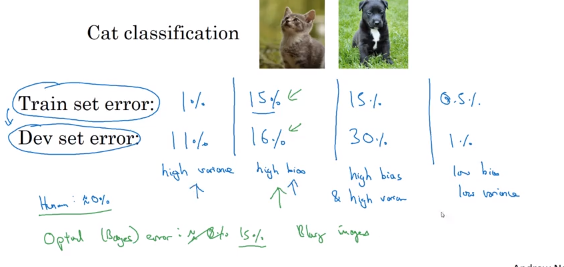 Cat classification
Train set error: 1% 15% 15% 0.5%
Dev set error: 11% 16% 30% 1%
high variance high bias high bias low bias
& high low variance
Human: ≈0%
Optimal (Bayes) error: ≈ 0% 15% Blurry images
Andrew